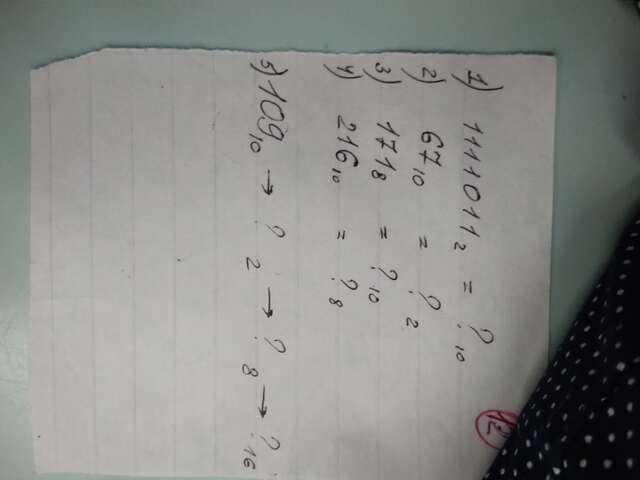 1) 1111011₂ = ?₁₀
2) 67₁₀ = ?₂
3) 171₈ = ?₁₀
4) 216₁₀ = ?₈
5) 109₁₀ → ?₂ → ?₈ → ?₁₆